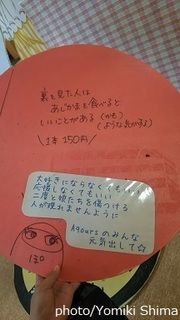 裏も見た人は
あじかまも食べると
いいことがある(かも)
(ような気がする)
\1本150円/
大好きにならなくてもいい
応援しなくてもいい
二度と娘たちを傷つける
人が現れませんように
Aqoursのみんな
元気出して☆
130
photo/Yomiki Shima